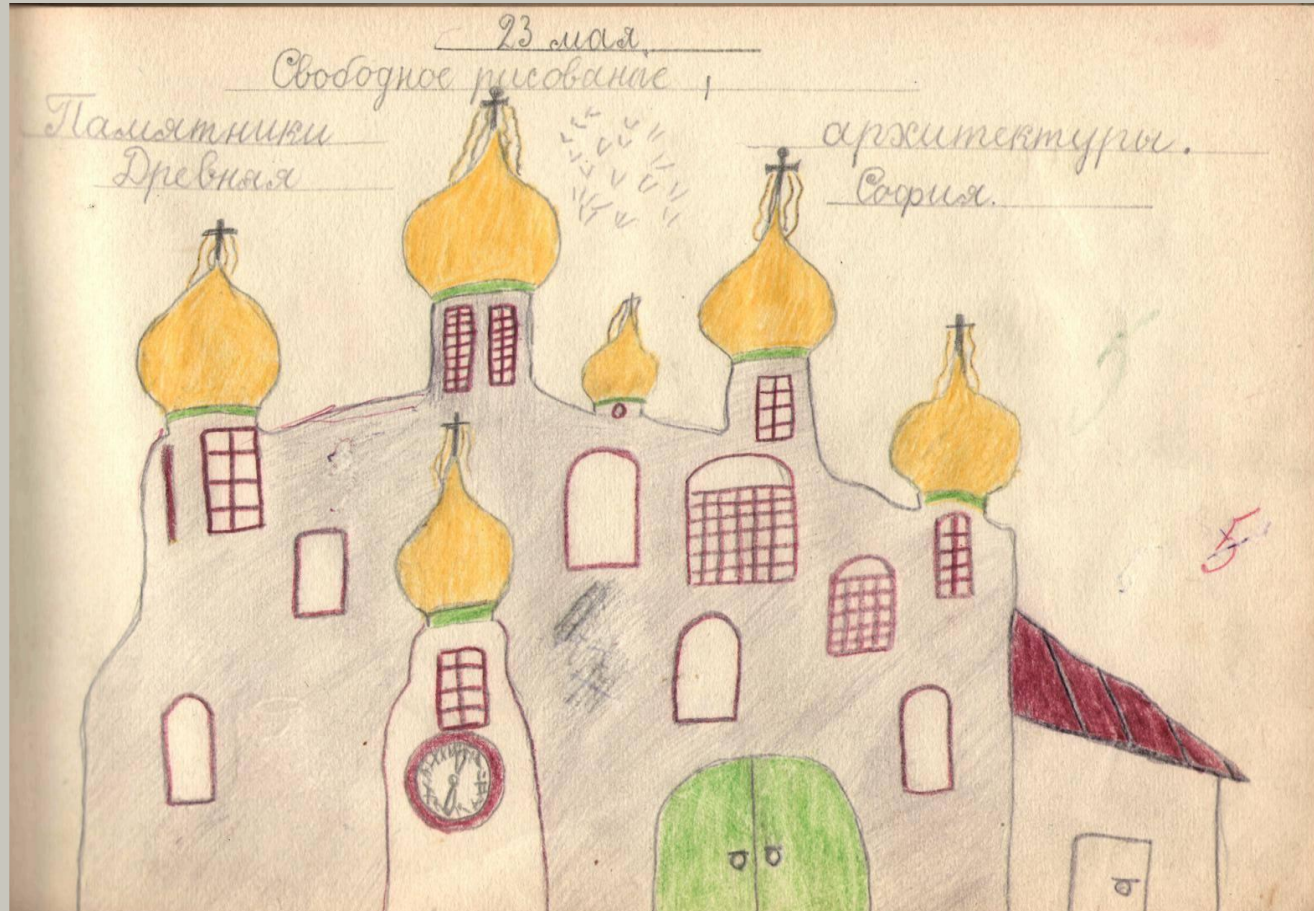 23 мая.
Свободное рисование,
Памятники архитектуры.
Древняя София.
5
5